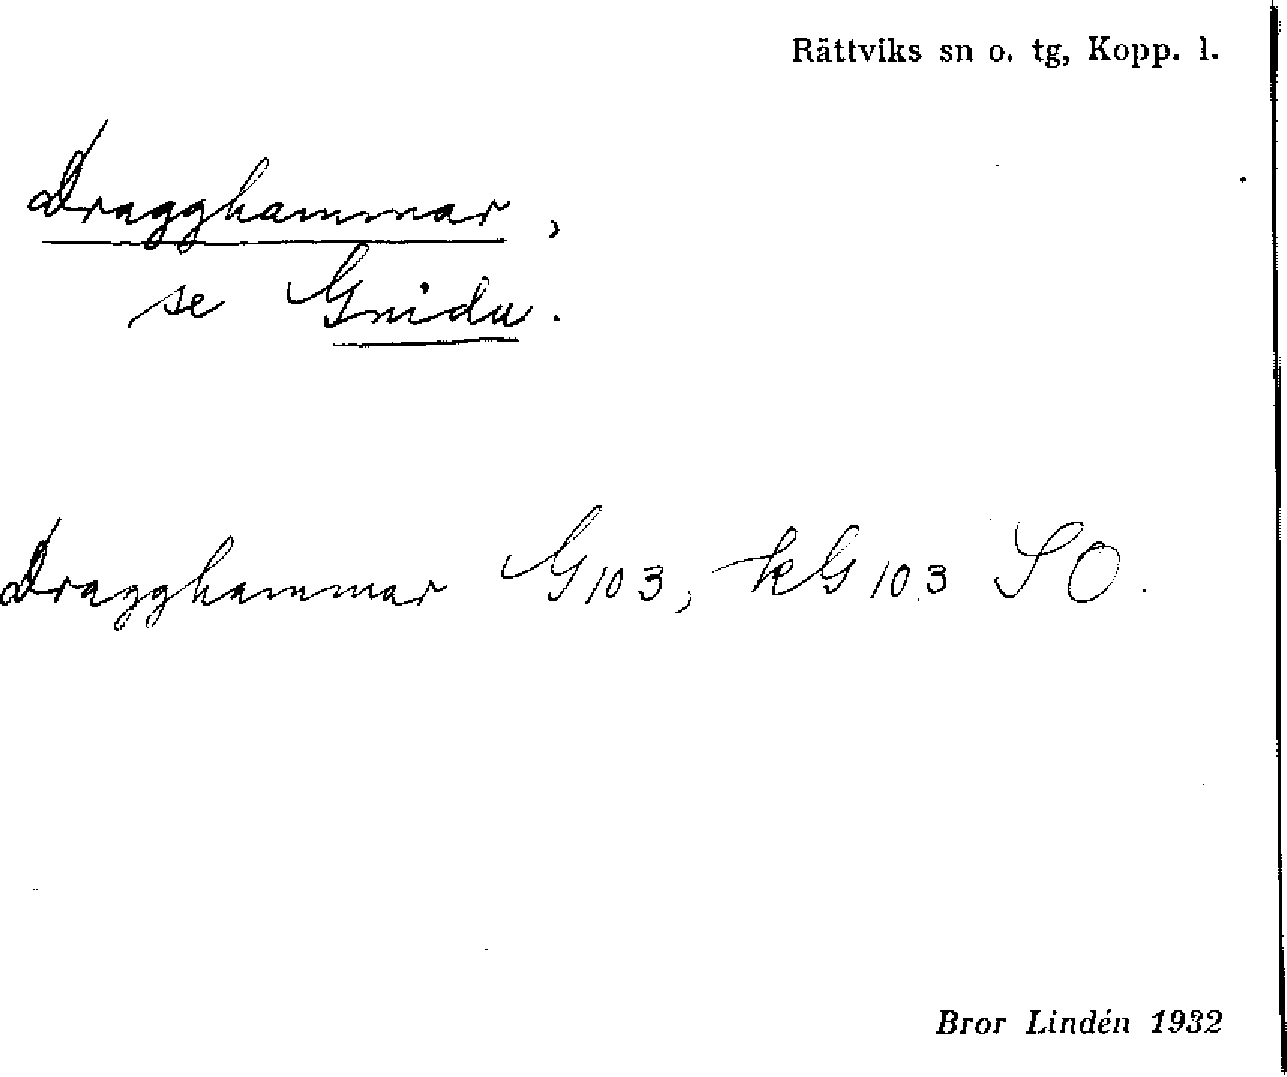 Rättviks sn o. tg, Kopp. l.
Dragghammar,
se Gnida.
Dragghammar G103, kG103 SO.
Bror Lindén 1932